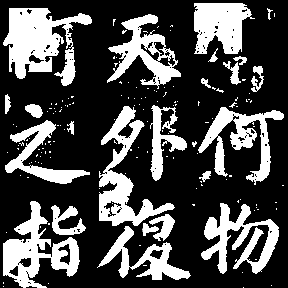 何物
天外復
何之指